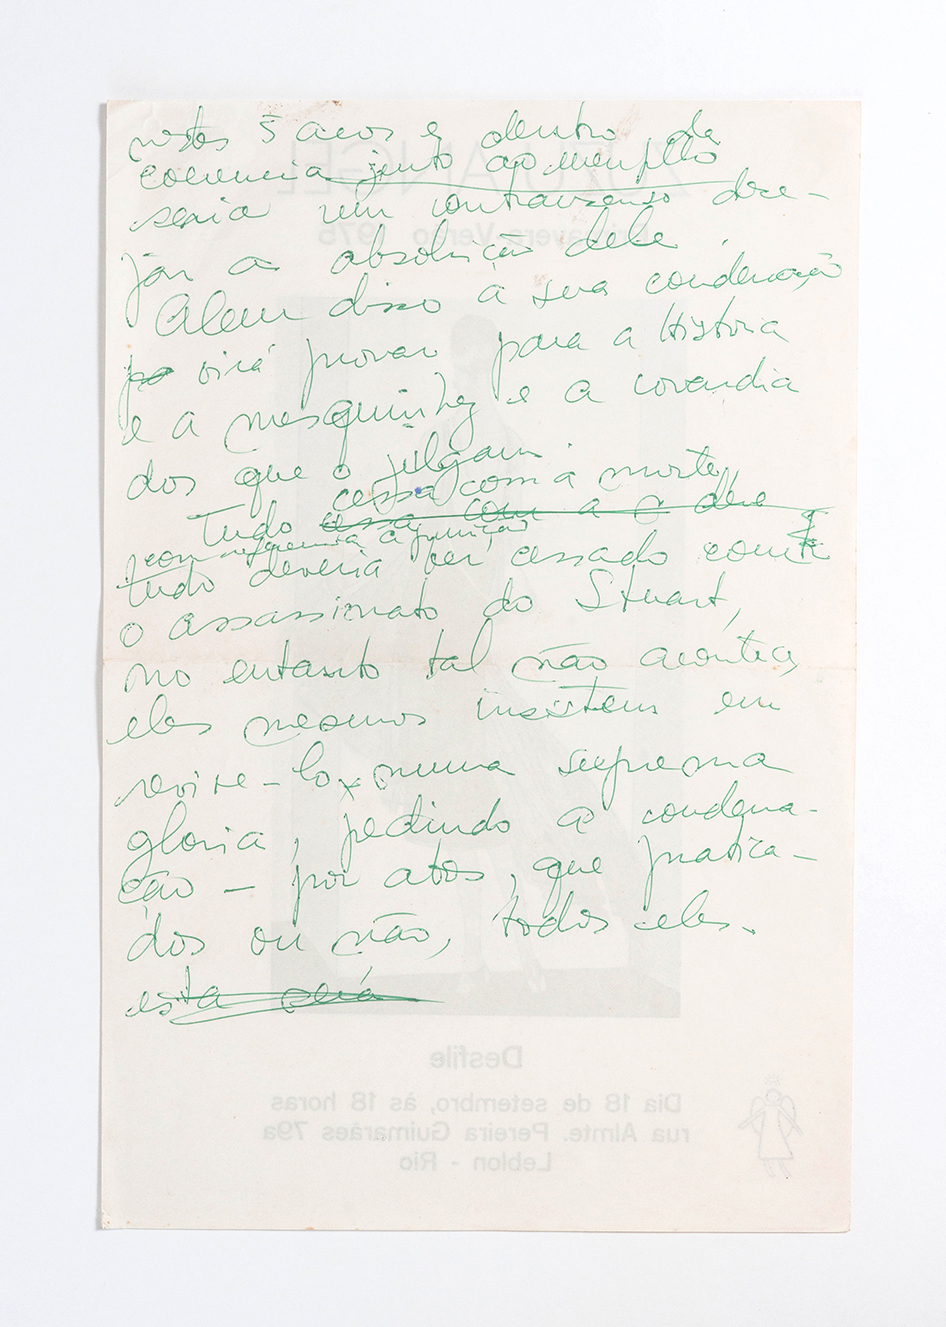 nestes 5 anos e dentro da
coerencia junto ao
seria um contrasenso dese-
jar a absolvição dele.
Alem disso a sua condenação
virá provar para a História
e a mesquinhez e a covardia
dos que o julgam.
cessa com a morte,
Tudo cessa com a
com referencia a punição
tudo deveria ter cessado com
o assassinato do Stuart,
no entanto tal não acontece,
eles mesmos insistem em
revive-lo, numa suprema
gloria, pedindo a condena-
ção – por atos, que pratica-
dos ou não, todos eles.
esta será
ZUZU ANGEL
Primavera Verão 1975
Desfile
Dia 18 de setembro, às 18 horas
rua Almte. Pereira Guimarães 79a
Leblon - Rio